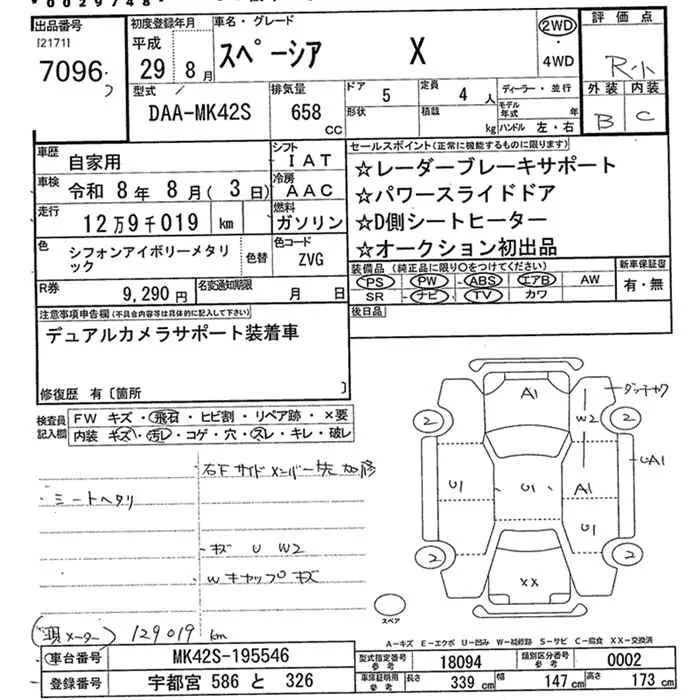 出品番号 初度登録年月 車名・グレード 2WD 評価点
[2171] 平成 スペーシア X ・
7096 29 8月 4WD R小
型式 排気量 ドア 定員 ディーラー・並行 外装 内装
DAA-MK42S 658 CC 5 4人 モデル年式 年 B C
形状 積載 kg ハンドル 左・右
車歴 自家用 シフト IAT セールスポイント(正常に機能するものに限ります)
車検 令和 8年 8月( 3日) 冷房 AAC ☆レーダーブレーキサポート
走行 12万9千019 km 燃料 ガソリン ☆パワースライドドア
☆D側シートヒーター
色 シフォンアイボリーメタリック 色替 色コード ZVG ☆オークション初出品
装備品(純正品に限り○をつけてください) 新車保証書
R券 9,290円 名変通知期限 月 日 PS・PW・ABS・エアB・AW 有・無
SR・ナビ・TV・カワ
注意事項申告欄(不具合内容等は具体的に記入して下さい) 後日品
デュアルカメラサポート装着車
修復歴 有〔箇所 〕
検査員記入欄 FW キズ・飛石・ヒビ割・リペア跡・×要
内装 キズ・汚レ・コゲ・穴・スレ・キレ・破レ
右Fサイドメンバー先 加修
・シートヘタリ
・キズ U W2
Wキャップキズ
A1
W2
2 2
UA1
U1 U1 A1
U1
2 2
XX
スペア
(現メーター) 129019 km
A-キズ E-エクボ U-凹み W-補修跡 S-サビ C-腐食 XX-交換済
車台番号 MK42S-195546 型式指定番号 参考 18094 類別区分番号 参考 0002
登録番号 宇都宮 586 と 326 車庫証明用 参考 長さ 339 cm 幅 147 cm 高さ 173 cm